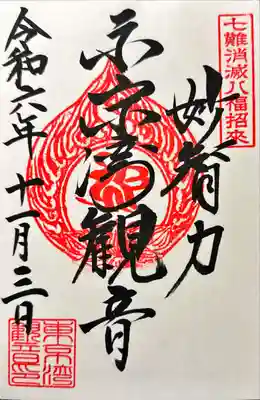 七難消滅八福招來
妙智力
東京湾観音
令和六年十一月三日
東京湾
觀音印